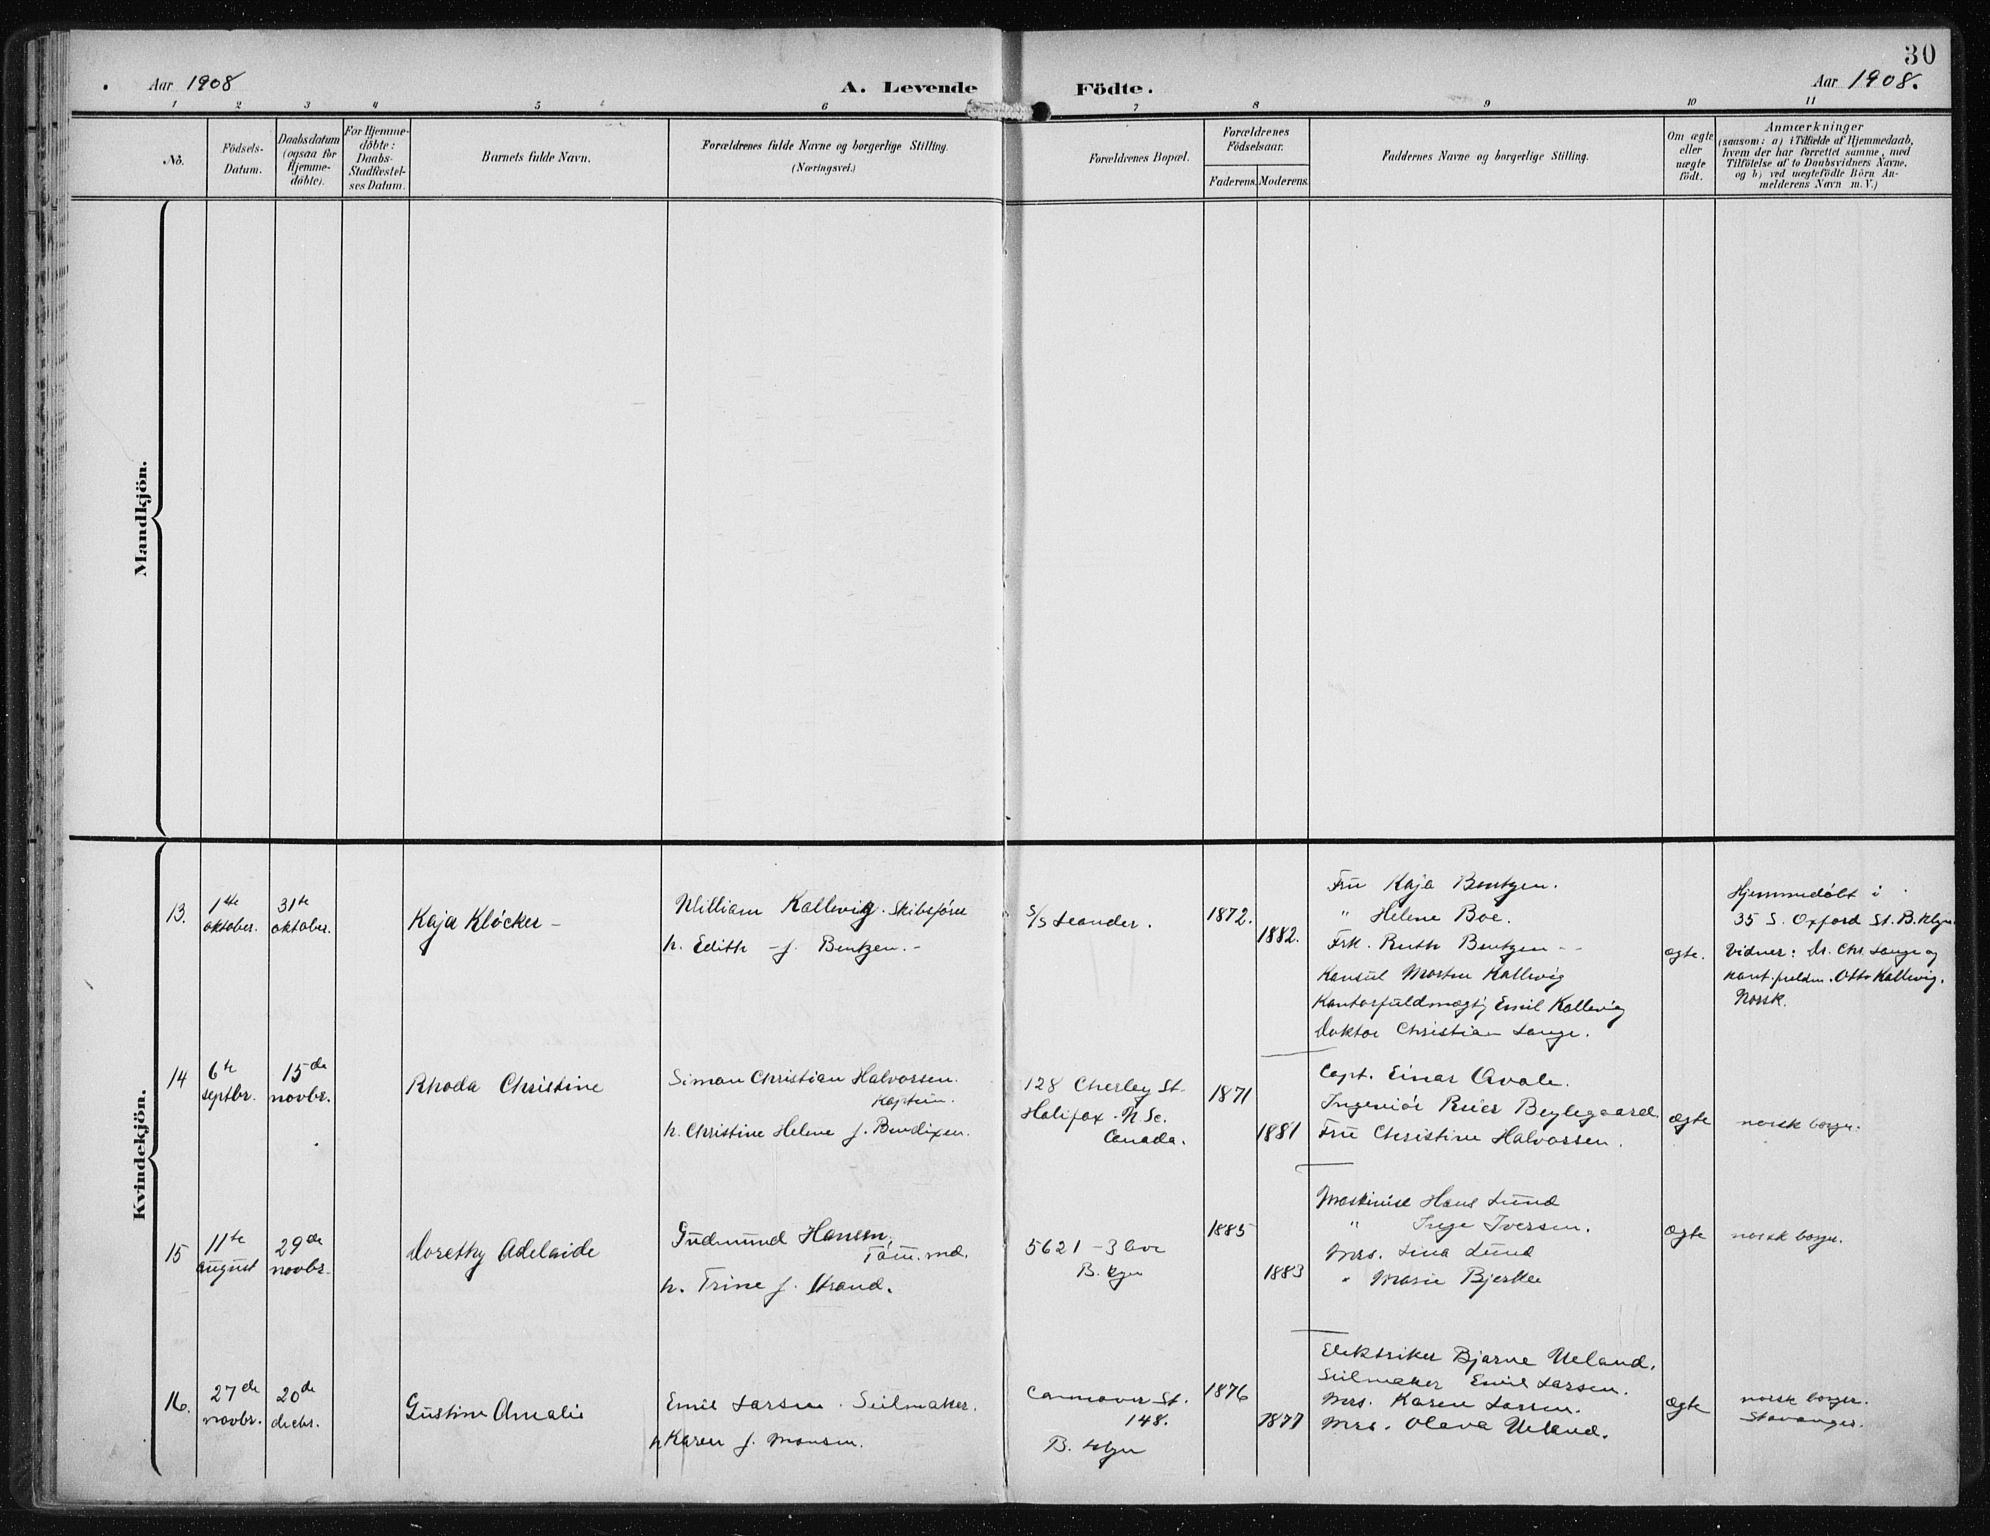 30
Aar 1908
A. Levende
Födte.
Aar 1908.
1 2 3 4 5 6 7 8 9 10 11
No.
Födsels-
Datum.
Daabsdatum
(ogsaa for
Hjemme-
döbte).
For Hjemme-
döbte:
Daabs-
Stadfæstel-
ses Datum.
Barnets fulde Navn.
Forældrenes fulde Navne og borgerlige Stilling.
(Næringsvei.)
Forældrenes Bopæl.
Forældrenes
Födselsaar.
Faderens.
Moderens.
Faddernes Navne og borgerlige Stilling.
Om ægte
eller
uægte
födt.
Anmærkninger
(saasom: a) i Tilfælde af Hjemmedaab,
hvem der har forrettet samme, med
Tilföielse af to Daabsvidners Navne.
og b) ved uægtefödte Börn An-
melderens Navn m. V.)
Mandkjön.
Kvindekjön.
13.
1ste
oktober.
31te
oktober.
Kaja Klöcker –
William Kallevig. Skibsförer
h. Edith – f. Bentzen. –
S/S Leander.
1872.
1882.
Fru Kaja Bentzen.
" Helene Boe.
Frk. Ruth Bentzen – –
Konsul Morten Kallevig
Kontorfuldmægtig Emil Kallevig
Doktor Christian Lange.
ægte.
Hjemmedöbt i
35 S. Oxford St. B.klyn.
Vidner: Dr. Chr. Lange og
Otto Kallevig.
Norsk.
14
6te
septbr.
15de
novbr.
Rhoda Christine
Simon Christian Halvorsen.
Kaptein.
h. Christine Helene f. Bendixen.
128 St.
Halifax. N. Sc.
Canada.
1871
1881
Capt. Einar
Ingeniör Beylegaard.
Fru Christine Halvorsen.
ægte
norsk borger.
15
11te
august
29de
novbr.
Dorethy Adelaide
Gudmund Hansen,
h. Trine f. Strand.
5621 – 3 Ave
B. klyn
1885
1883
Maskinist Hans Lund
" Inge Iversen.
Mrs. Lina Lund
" Marie Bjerke
ægte
norsk borger.
16.
27de
novbr.
20de
decbr.
Gustine Amalie
Emil Larsen. Seilmaker.
h. Karen f. Monsen.
St.
148.
B. klyn
1876
1877
Elektriker Bjarne Ueland.
Seilmaker Emil Larsen.
Mrs. Karen Larsen.
Mrs. Olava Ueland.
ægte
norsk borger.
Stavanger.